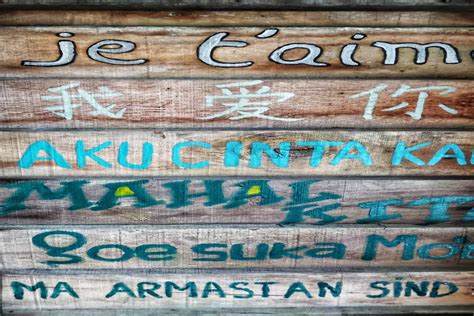 je t'aim
我爱你
AKU CINTA KA
MAHAL KIT
goe suka Mo
MA ARMASTAN SIND